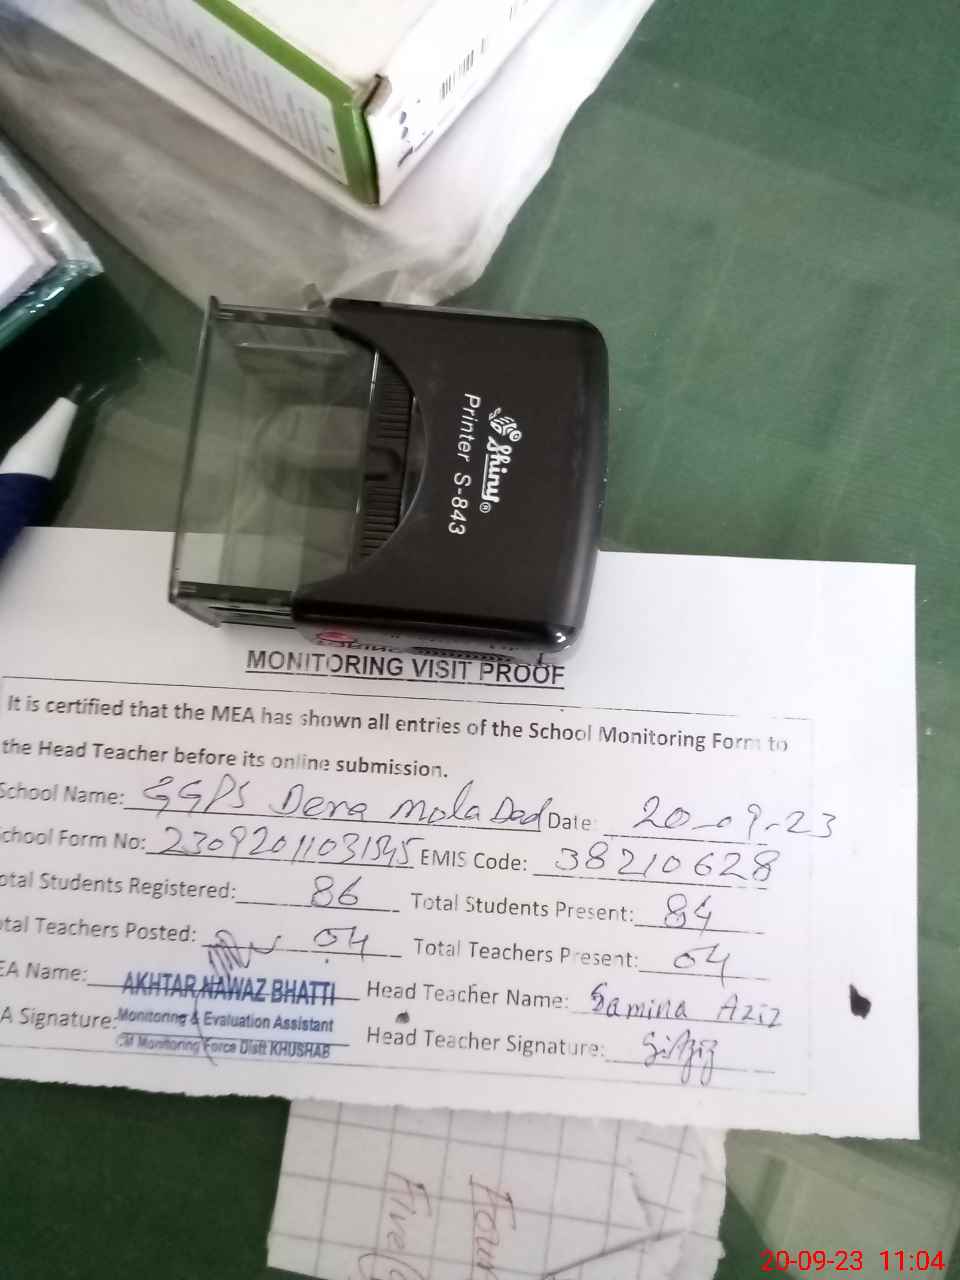 Shiny®
Printer S-843
MONITORING VISIT PROOF
It is certified that the MEA has shown all entries of the School Monitoring Form to
the Head Teacher before its online submission.
School Name: GGPS Dera Mola Dad Date: 20-09-23
chool Form No: 23092011031545 EMIS Code: 38210628
otal Students Registered: 86 Total Students Present: 84
tal Teachers Posted: 04 Total Teachers Present: 04
EA Name: AKHTAR NAWAZ BHATTI Head Teacher Name: Samina Aziz
A Signature: Monitoring & Evaluation Assistant
CM Monitoring Force Distt KHUSHAB
Head Teacher Signature: S.Aziz
Four
Five
20-09-23 11:04